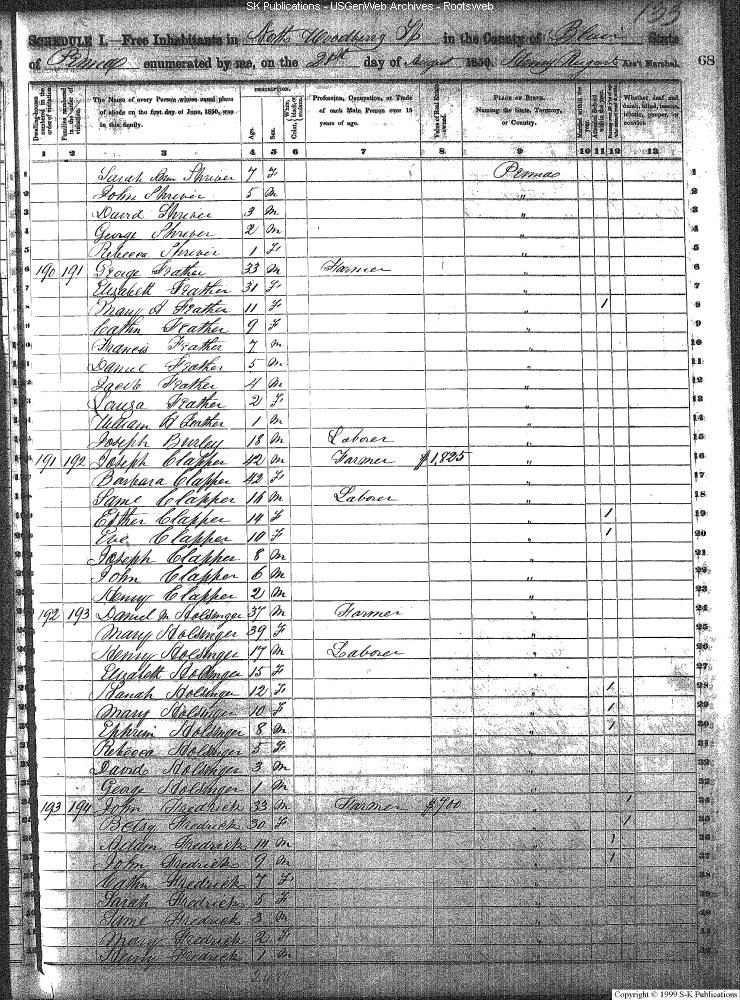 SK Publications - USGenWeb Archives - Rootsweb
133
SCHEDULE I.—Free Inhabitants in North Woodbury Tp in the County of Blair State
of Penna enumerated by me, on the 21st day of August 1850. Henry Ass't Marshal. 68
DESCRIPTION.
Dwelling-houses numbered in the order of visitation.
Families numbered in the order of visitation.
The Name of every Person whose usual place of abode on the first day of June, 1850, was in this family.
Age.
Sex.
Profession, Occupation, or Trade of each Male Person over 15 years of age.
Value of Real Estate owned.
PLACE OF BIRTH. Naming the State, Territory, or Country.
Whether deaf and dumb, blind, insane, idiotic, pauper, or convict.
1 2 3 4 5 6 7 8 9 10 11 12 13
Sarah Ann Shriver 7 F Penna 1
John Shriver 5 M " 2
David Shriver 3 M " 3
George Shriver 2 M " 4
Rebecca Shriver 1 F " 5
190 191 George Feather 33 M Farmer " 6
Elizabeth Feather 31 F " 7
Mary A Feather 11 F " 1 8
Cathn Feather 9 F " 9
Francis Feather 7 M " 10
Daniel Feather 5 M " 11
Jacob Feather 4 M " 12
Louisa Feather 2 F " 13
William B Feather 1 M " 14
Joseph Burley 18 M Laborer " 15
191 192 Joseph Clapper 42 M Farmer $1,825 " 16
Barbara Clapper 42 F " 17
Saml Clapper 16 M Laborer " 18
Esther Clapper 14 F " 1 19
Eve Clapper 10 F " 1 20
Joseph Clapper 8 M " 21
John Clapper 6 M " 22
Henry Clapper 2 M " 23
192 193 Daniel M Holsinger 37 M Farmer " 24
Mary Holsinger 39 F " 25
Henry Holsinger 17 M Laborer " 26
Elizabeth Holsinger 15 F " 27
Hanah Holsinger 12 F " 1 28
Mary Holsinger 10 F " 1 29
Ephrim Holsinger 8 M " 1 30
Rebecca Holsinger 5 F " 31
David Holsinger 3 M " 32
George Holsinger 1 M " 33
193 194 John Fredrick 33 M Farmer $700 " 1 34
Betsy Fredrick 30 F " 1 35
Adam Fredrick 11 M " 1 36
John Fredrick 9 M " 1 37
Cathn Fredrick 7 F " 38
Sarah Fredrick 5 F " 39
Saml Fredrick 3 M " 40
Mary Fredrick 2 F " 41
Henry Fredrick 1 M " 42
Copyright © 1999 S-K Publications